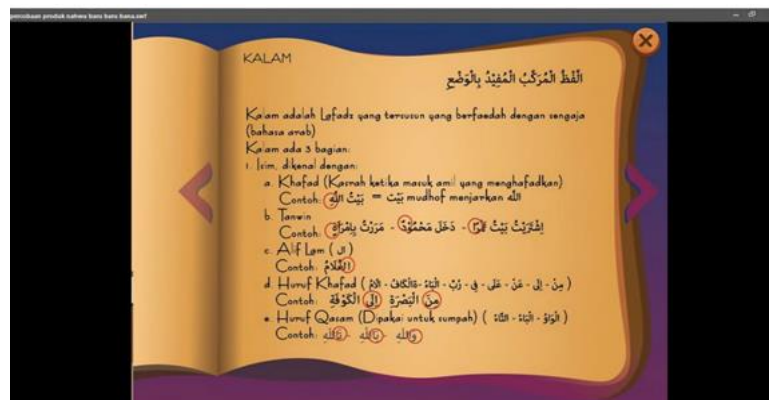 percobaan produk nahwu bans bans bans.swf
KALAM
الْفَظُ الْمُرَكَّبُ الْمُفِيْدُ بِالْوَضْعِ
Kalam adalah Lafadz yang tersusun yang berfaedah dengan sengaja
(bahasa arab)
Kalam ada 3 bagian:
1. Isim, dikenal dengan:
a. Khafad (Kasrah ketika masuk amil yang menghafadkan)
Contoh: بَيْتُ اللّٰهِ = بَيْتُ mudhof menjarkan الله
b. Tanwin
Contoh: اِشْتَرَيْتُ بَيْتُ - دَخَلَ مَحْمُوْدٌ - مَرَرْتُ بِاِمْرَأَةٍ
c. Alif Lam ( ال )
Contoh: الغُلَامُ
d. Huruf Khafad ( مِنْ - اِلَى - عَنْ - عَلَى - فِى - رُبَّ - الْبَاءُ - الْكَافُ - الامُ )
Contoh: مِنَ الْبَصْرَةِ اِلَى الْكُوْفَةِ
e. Huruf Qasam (Dipakai untuk sumpah) ( الْوَاوُ - الْبَاءُ - التَّاءُ )
Contoh: وَاللهِ - بَاللهِ - تَاللهِ